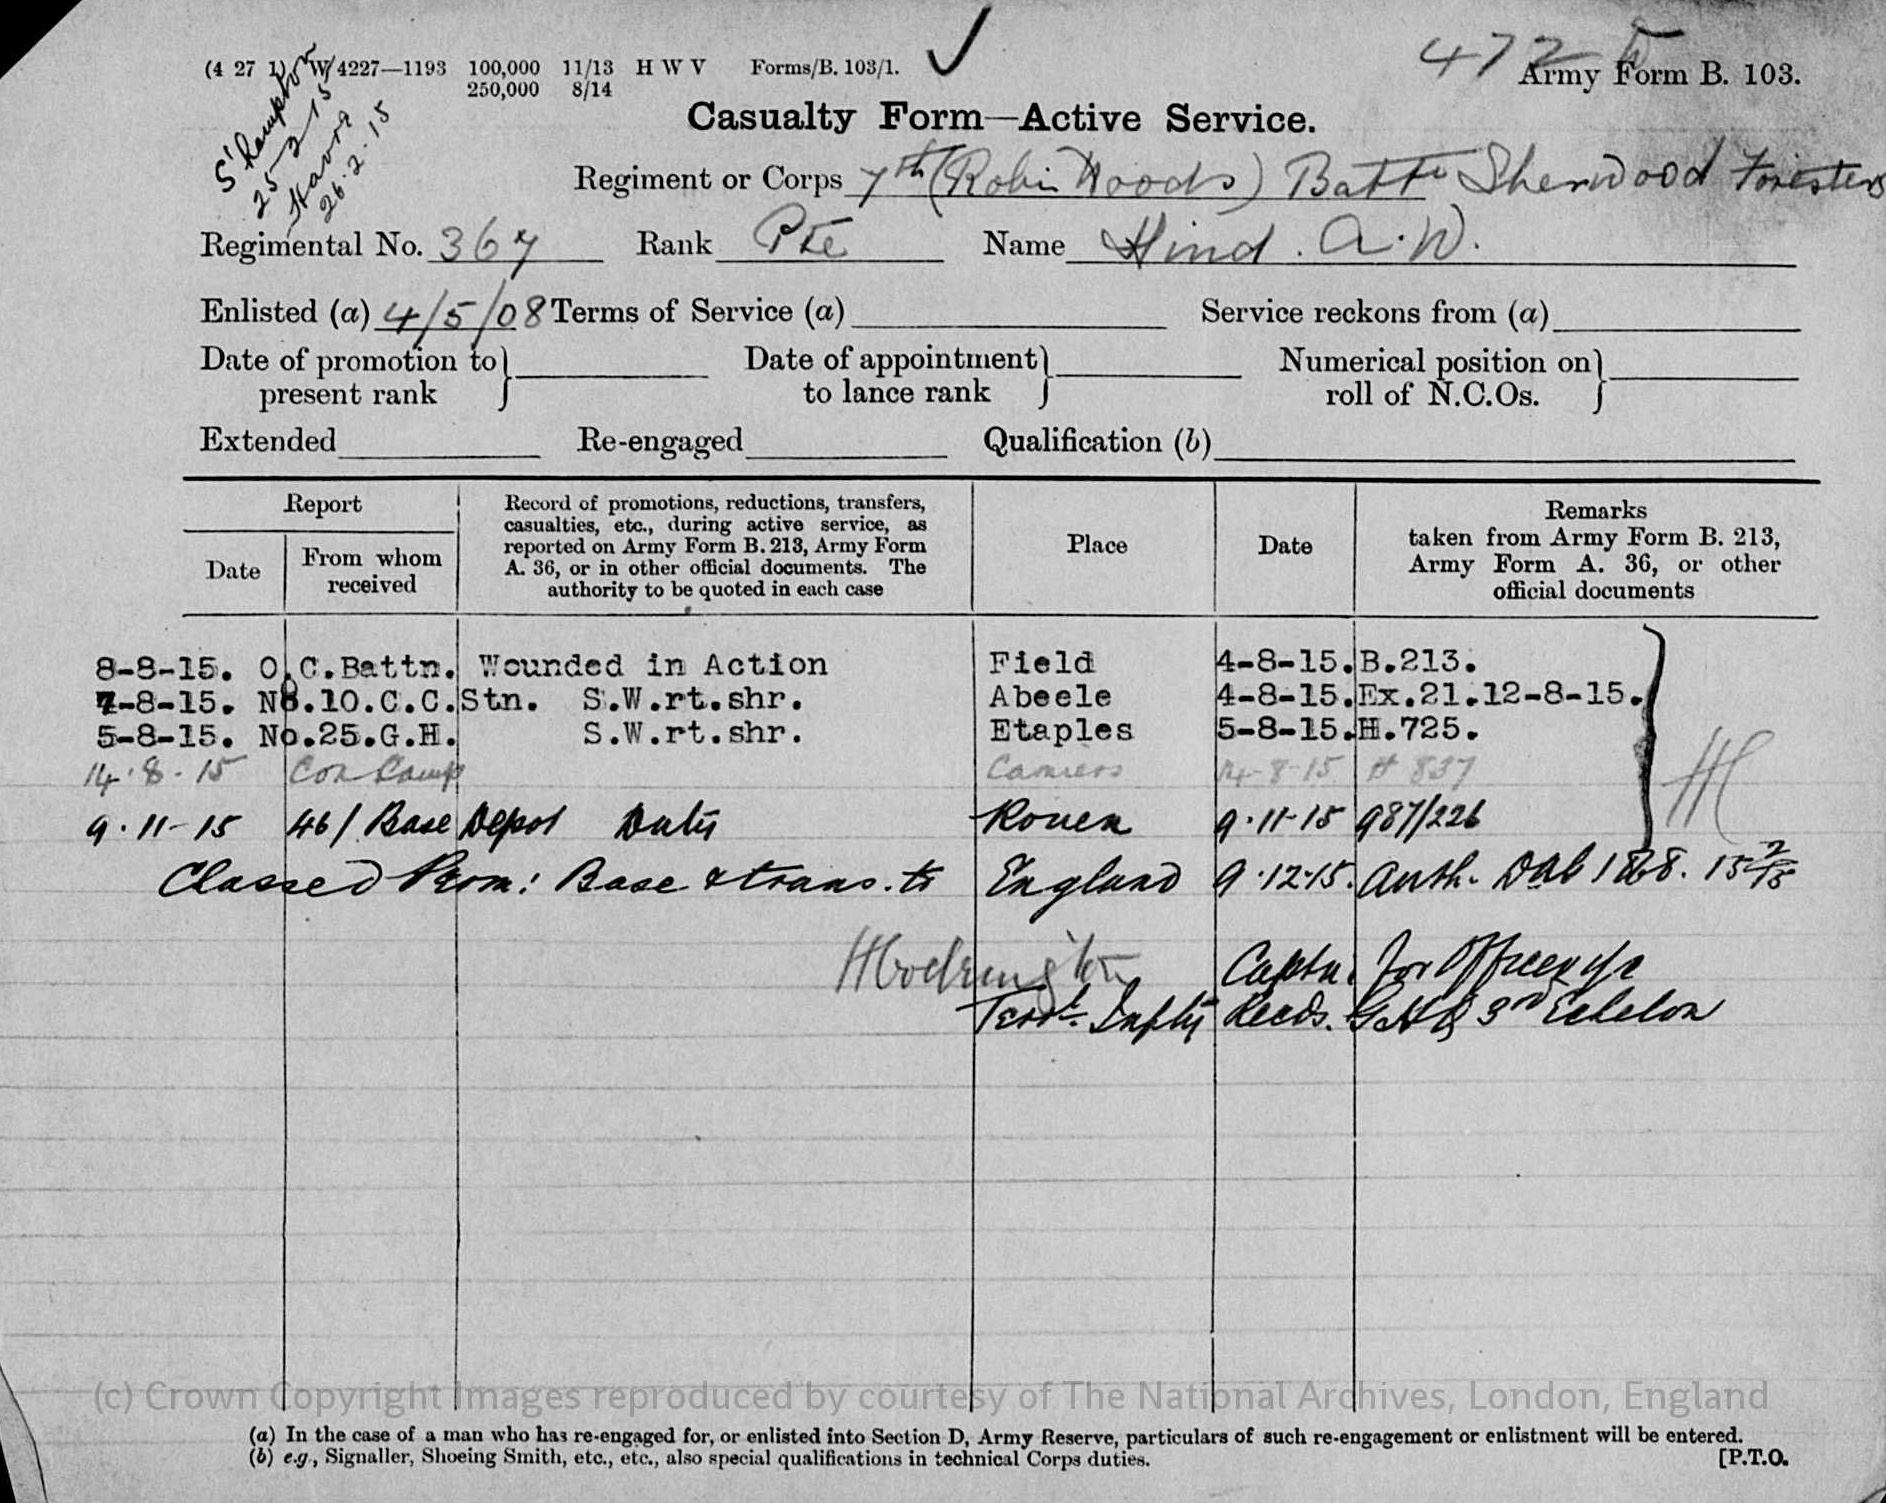 (4 27 1) W 4227—1193 100,000 11/13 H W V Forms/B. 103/1.
250,000 8/14
472
Army Form B. 103.
S'hampton
25-2-15
Havre
26.2.15
Casualty Form—Active Service.
Regiment or Corps 7th (Robin Hoods) Battn Sherwood Foresters
Regimental No. 367 Rank Pte Name Hind. A.W.
Enlisted (a) 4/5/08 Terms of Service (a) Service reckons from (a)
Date of promotion to present rank } Date of appointment to lance rank } Numerical position on roll of N.C.Os. }
Extended Re-engaged Qualification (b)
Report
Date
From whom received
Record of promotions, reductions, transfers,
casualties, etc., during active service, as
reported on Army Form B. 213, Army Form
A. 36, or in other official documents. The
authority to be quoted in each case
Place
Date
Remarks
taken from Army Form B. 213,
Army Form A. 36, or other
official documents
8-8-15. O.C.Battn. Wounded in Action Field 4-8-15. B.213.
7-8-15. No.10.C.C.Stn. S.W.rt.shr. Abeele 4-8-15. Ex.21.12-8-15.
5-8-15. No.25.G.H. S.W.rt.shr. Etaples 5-8-15. H.725.
14.8.15 Con Camp Camiers 14-8-15 H 837
9.11-15 46/ Base Depot Duty Rouen 9.11-15 987/226
Classed Perm: Base & trans. to England 9.12.15. Auth.
Captn. for Officer i/c
Terrl. Infty Recds. GHQ 3rd Echelon
(c) Crown Copyright Images reproduced by courtesy of The National Archives, London, England
(a) In the case of a man who has re-engaged for, or enlisted into Section D, Army Reserve, particulars of such re-engagement or enlistment will be entered.
(b) e.g., Signaller, Shoeing Smith, etc., etc., also special qualifications in technical Corps duties.
[P.T.O.